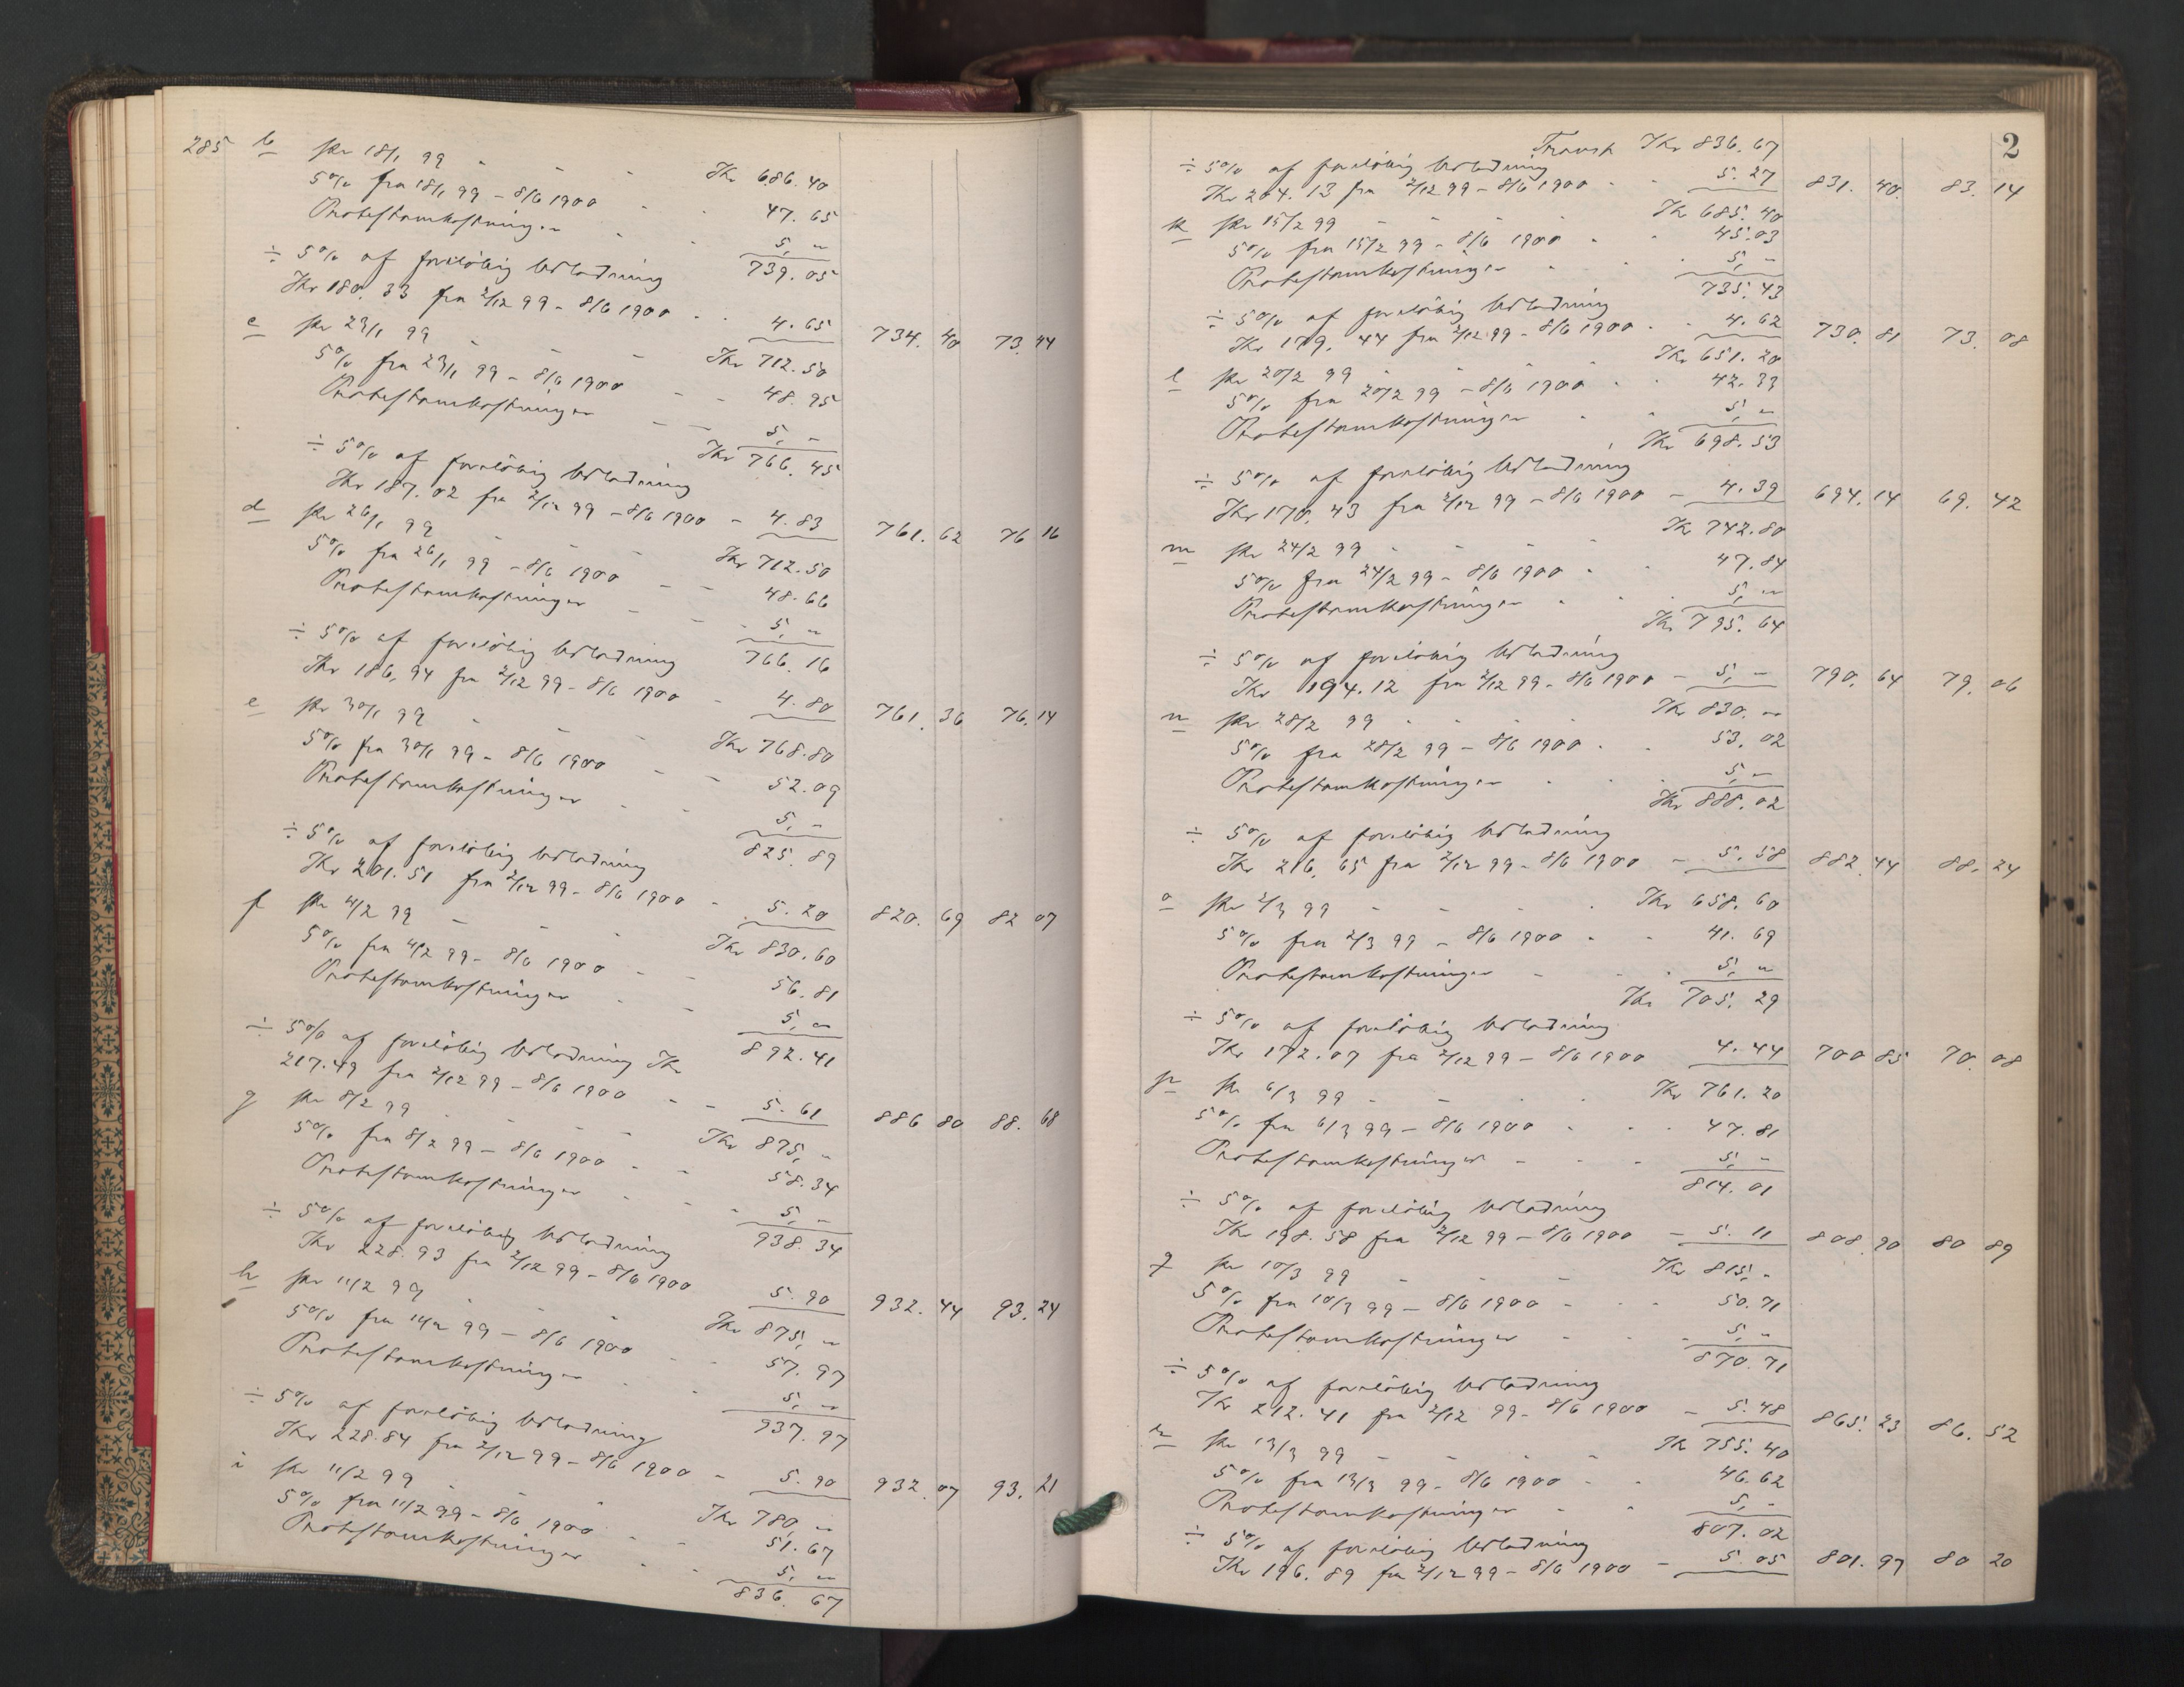 285 b pr 18/1 99 - - - Kr 686.40
5% fra 18/1 99 - 8/6 1900 - - 47.65
Protestomkostninger - - 5, "
739.05
÷ 5% af foreløbig Udlodning
Kr 180.33 fra 2/12 99 - 8/6 1900 - - 4.65 734.40 73.44
c pr 23/1 99 - - - Kr 712.50
5% fra 23/1 99 - 8/6 1900 - - 48.95
Protestomkostninger - - 5, -
Kr 766.45
÷ 5% af foreløbig Udlodning
Kr 187.02 fra 2/12 99 - 8/6 1900 - 4.83 761.62 76 16
d pr 26/1 99 - - - Kr 712.50
5% fra 26/1 99 - 8/6 1900 - - 48.66
Protestomkostninger - - - 5, "
766.16
÷ 5% af foreløbig Udlodning
Kr 186,94 fra 2/12 99 - 8/6 1900 - 4.80 761.36 76.14
e pr 30/1 99 - - - Kr 768.80
5% fra 30/1 99 - 8/6 1900 - - 52.09
Protestomkostninger - - 5, -
825.89
÷ 5% af foreløbig Udlodning
Kr 201.51 fra 2/12 99 - 8/6 1900 - 5.20 820.69 82 07
f pr 4/2 99 - - - Kr 830.60
5% fra 4/2 99 - 8/6 1900 - - 56.81
Protestomkostninger - - 5, "
892.41
÷ 5% af foreløbig Udlodning Kr
217.49 fra 2/12 99 - 8/6 1900 - - 5.61 886 80 88.68
g pr 8/2 99 - - - Kr 875, -
5% fra 8/2 99 - 8/6 1900 - - 58.34
Protestomkostninger - - - 5, -
938.34
÷ 5% af foreløbig Udlodning
Kr 228.93 fra 2/12 99 - 8/6 1900 5.90 932.44 93.24
h pr 11/2 99 - - - Kr 875, "
5% fra 11/2 99 - 8/6 1900 - - 57.97
Protestomkostninger - - 5, "
937.97
÷ 5% af foreløbig Udlodning
Kr 228.84 fra 2/12 99 - 8/6 1900 - 5.90 932.07 93.21
i pr 11/2 99 - - Kr 780, "
5% fra 11/2 99 - 8/6 1900 - - 51.67
Protestomkostninger - - 5, "
836.67
2
Transp Kr 836.67
÷ 5% af foreløbig Udlodning
Kr 204.13 fra 2/12 99 - 8/6 1900 - - 5.27 831.40. 83.14
k pr 15/2 99 - - - - Kr 685.40
5% fra 15/2 99 - 8/6 1900 - - 45.03
Protestomkostninger - - - 5, -
735.43
÷ 5% af foreløbig Udlodning
Kr 179.44 fra 2/12 99 - 8/6 1900 - - 4.62 730.81 73.08
l pr 20/2 99 - - - Kr 651.20
5% fra 20/2 99 - 8/6 1900 - - 42.33
Protestomkostninger - - 5, "
Kr 698.53
÷ 5% af foreløbig Udlodning
Kr 170.43 fra 2/12 99 - 8/6 1900 - 4.39 694.14 69.42
m pr 24/2 99 - - - - Kr 742.80
5% fra 24/2 99 - 8/6 1900 - - 47.84
Protestomkostninger - - - 5, "
Kr 795.64
÷ 5% af foreløbig Udlodning
Kr 194.12 fra 2/12 99 - 8/6 1900 - 5, - 790.64 79.06
n pr 28/2 99 - - - - Kr 830. "
5% fra 28/2 99 - 8/6 1900 - - 53.02
Protestomkostninger - - - 5, -
Kr 888.02
÷ 5% af foreløbig Udlodning
Kr 216.65 fra 2/12 99 - 8/6 1900 - 5.58 882.44 88.24
o pr 2/3 99 - - - - Kr 658.60
5% fra 2/3 99 - 8/6 1900 - - 41.69
Protestomkostninger - - - 5, "
Kr 705.29
÷ 5% af foreløbig Udlodning
Kr 172.07 fra 2/12 99 - 8/6 1900 4.44 700 85 70.08
p pr 6/3 99 - - - - Kr 761.20
5% fra 6/3 99 - 8/6 1900 - - - 47.81
Protestomkostninger - - - 5, -
814.01
÷ 5% af foreløbig Udlodning
Kr 198.58 fra 2/12 99 - 8/6 1900 - 5.11 808.90 80 89
q pr 10/3 99 - - - - Kr 815, -
5% fra 10/3 99 - 8/6 1900 - - - 50.71
Protestomkostninger - - - 5, "
870.71
÷ 5% af foreløbig Udlodning
Kr 212.41 fra 2/12 99 - 8/6 1900 - 5.48 865.23 86.52
r pr 13/3 99 - - - - Kr 755.40
5% fra 13/3 99 - 8/6 1900 - - 46.62
Protestomkostninger - - 5, -
807.02
÷ 5% af foreløbig Udlodning
Kr 196.89 fra 2/12 99 - 8/6 1900 - 5.05 801.97 80 20